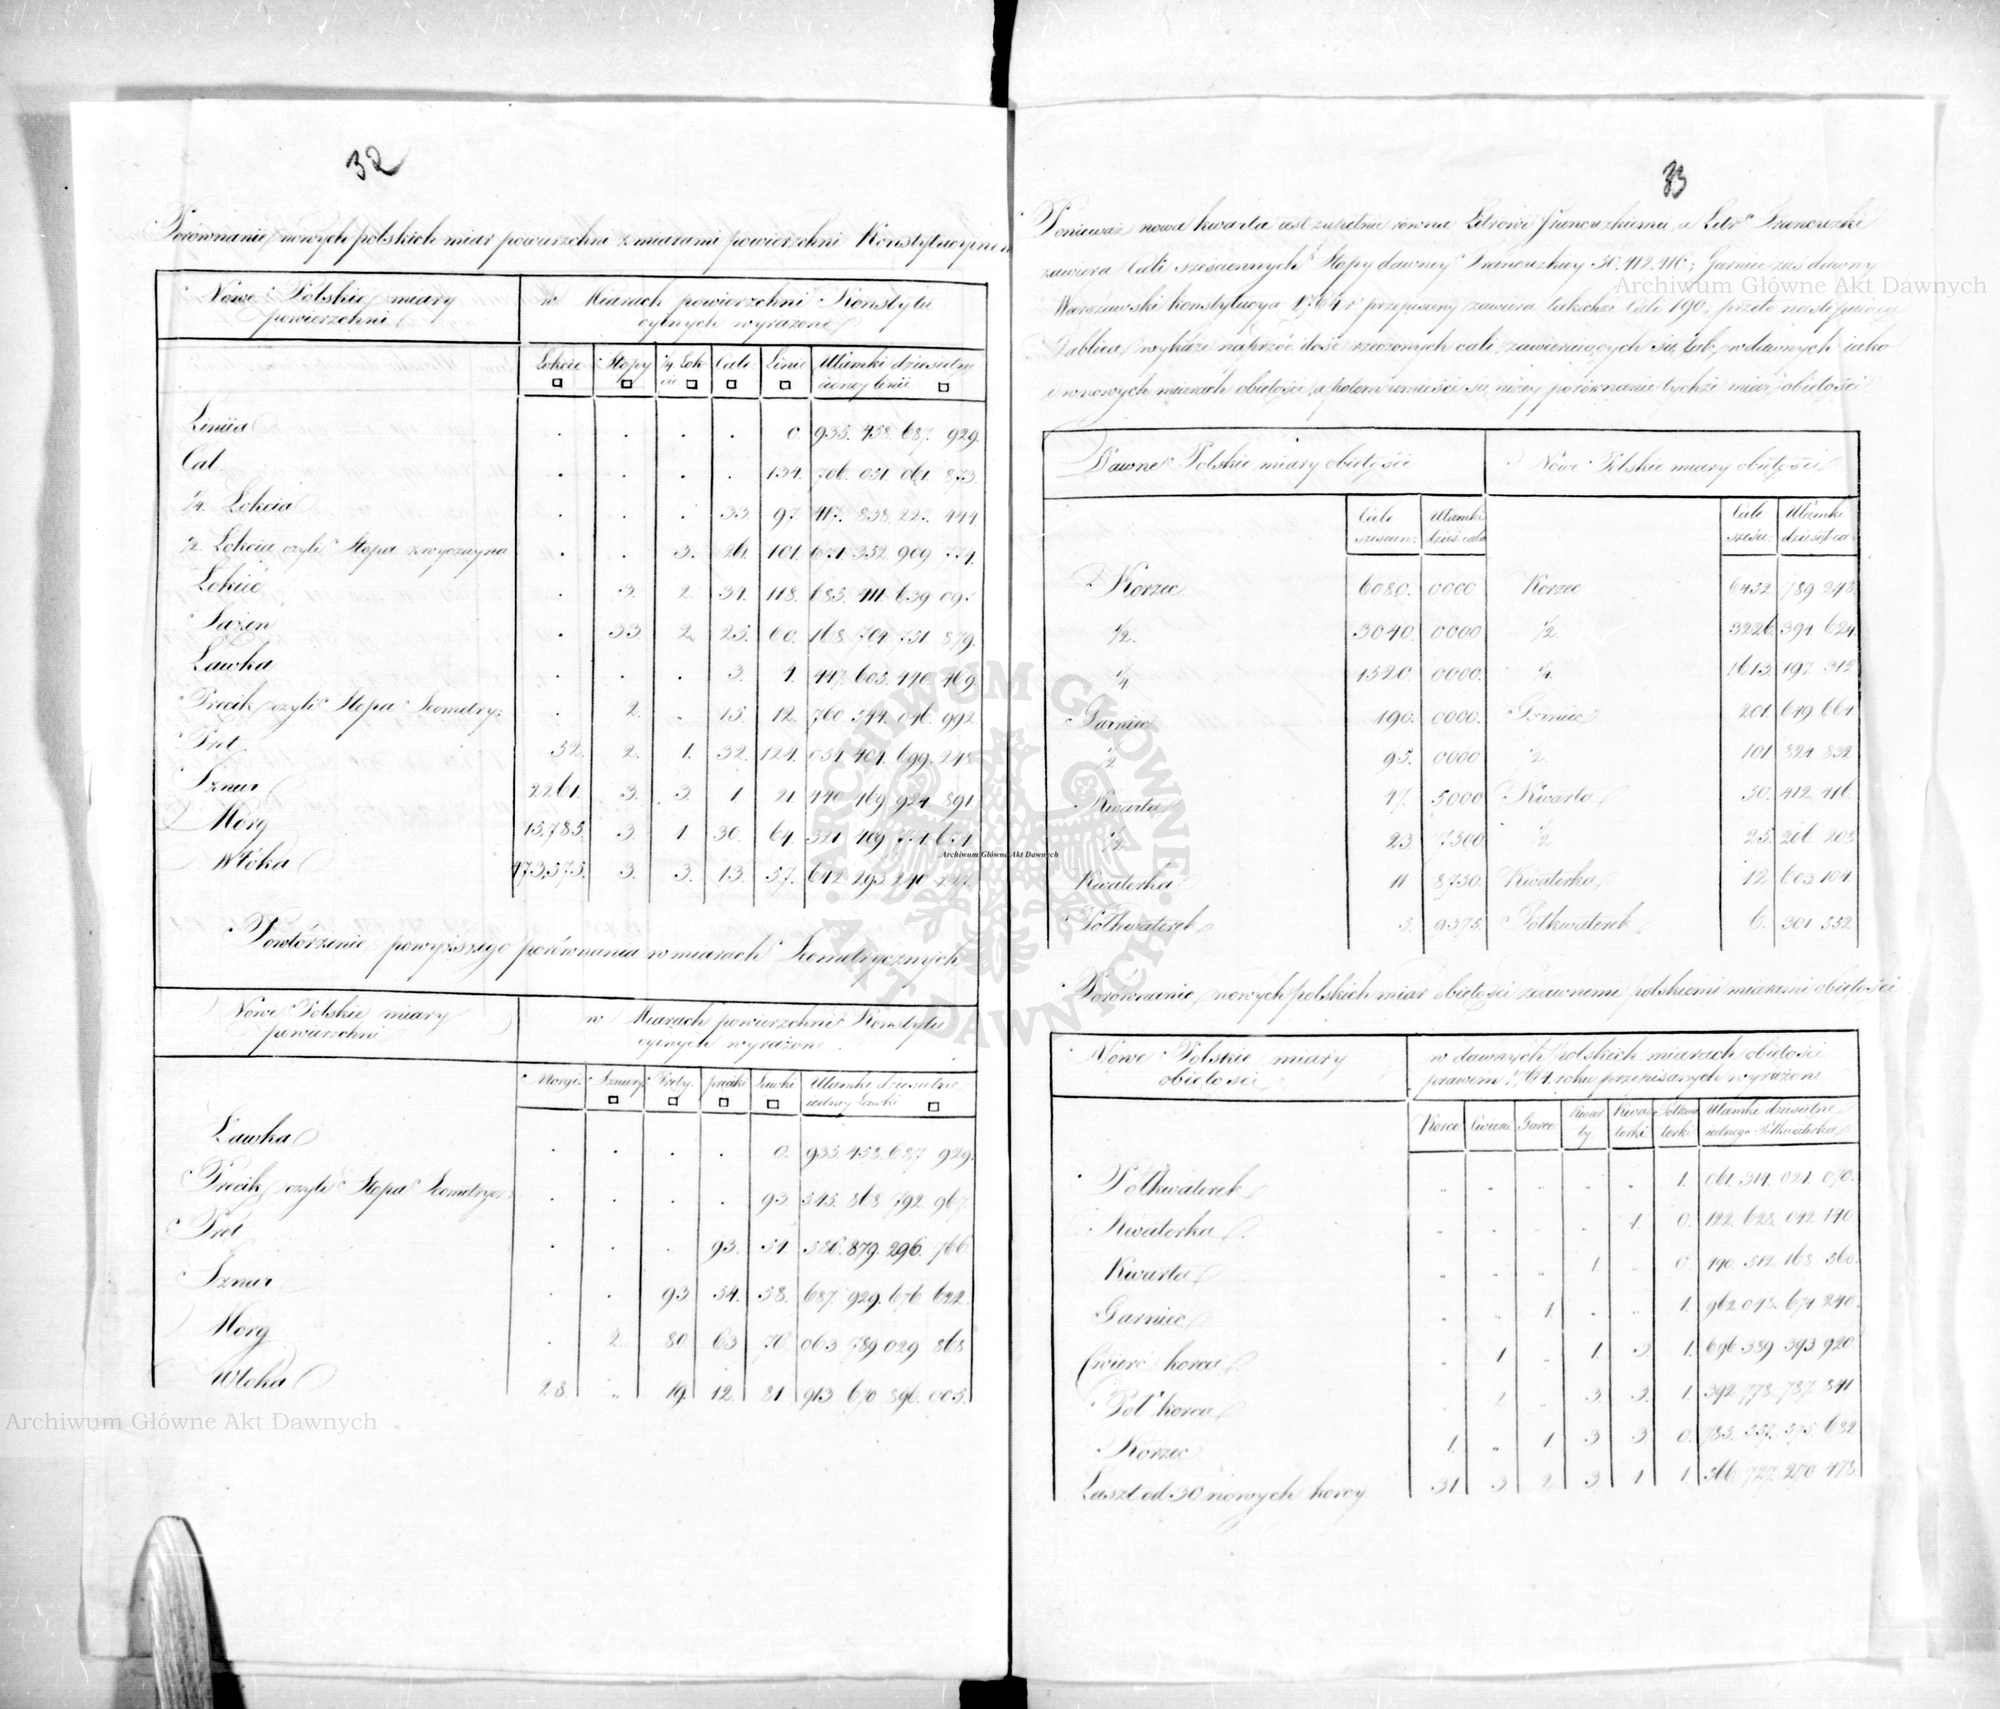 32
Porównanie nowych polskich miar powierzchni z miarami powierzchni Konstytucyinemi
Nowe Polskie miary powierzchni | w Miarach powierzchni Konstytu cyinych wyrażone
Łokcie □ | Stopy □ | ¼ Łok cia □ | Cale □ | Linie □ | Ułamki dziesiętne iedney linii □
Liniia | . | . | . | . | 0. | 935. 458. 687. 929.
Cal | . | . | . | . | 134. | 706. 051. 061. 873.
¼ Łokcia | . | . | . | 33. | 97. | 417. 838. 227. 444.
½ Łokcia czyli Stopa zwyczayna | . | . | 3. | 26. | 101. | 671. 352. 909. 774.
Łokieć | . | 3. | 2. | 34. | 118. | 685. 411. 639. 09
Sążeń | . | 33. | 2. | 25. | 60. | 168. 704. 751. 879.
Ławka | . | . | . | 3. | 4. | 447. 603. 440. 469.
Pręcik czyli Stopa Geometry: | . | 2. | . | 15. | 12. | 760. 344. 046. 992
Pręt | 52. | 2. | 1. | 32. | 124. | 034. 404. 699. 248
Sznur | 2261. | 3. | 3. | 1 | 21 | 440. 469. 924. 891.
Morg | 15,785. | 3. | 1 | 30. | 64. | 321. 409. 774. 674.
Włóka | 473,575. | 3. | 3. | 13. | 57. | 642. 293. 240. 227.
Powtórzenie powyższego porównania w miarach Geometrycznych
Nowe Polskie miary powierzchni | w Miarach powierzchni Konstytu cyinych wyrażone
Morgi | Sznury □ | Pręty □ | pręciki □ | Ławki □ | Ułamki dziesiętne iedney Ławki □
Ławka | . | . | . | . | 0. | 935. 458. 687. 929.
Pręcik czyli Stopa Geometrycz: | . | . | . | . | 93 | 545. 868. 792. 967.
Pręt | . | . | . | 93. | 54. | 586. 879. 296. 766.
Sznur | . | . | 93 | 54. | 58. | 687. 929. 676. 622.
Morg | . | 2. | 80. | 63 | 76. | 063 789 029 868
Włóka | 28. | „ | 19. | 12. | 81 | 913 670 896. 005.
33
Ponieważ nowa kwarta iest zupełnie równa Litrowi Francuzkiemu, a Litr Francuzki
zawiera Cali sześciennych Stopy dawney Francuzkiey 50,412,416; Garniec zaś dawny
Warszawski konstytucyą 1764 r przepisany zawiera takichże Cali 190, przeto następuiąca
Tablica wykaże naprzód ilość rzeczonych cali zawieraiących się tak w dawnych iako
i w nowych miarach obiętości, a potem umieści się niżey porównanie tychże miar obiętości
Dawne Polskie miary obiętości | Nowe Polskie miary obiętości
Cale sześcien: | Ułamki dzies: cala | Cale sześci: | Ułamki dzieśęt: ca
Korzec | 6080. | 0000. | Korzec | 6452. | 789 248
½. | 3040. | 0000 | ½. | 3226. | 394. 624.
¼ | 1520. | 0000. | ¼. | 1613. | 197. 312
Garniec | 190. | 0000. | Garniec | 201. | 649 664
½ | 95. | 0000 | ½. | 101 | 824 832
Kwarta | 47. | 5000 | Kwarta | 50. | 412. 416.
½ | 23 | 7500 | ½ | 25. | 206 208
Kwaterka | 11 | 8750. | Kwaterka | 12. | 603 104
Półkwaterek | 5. | 9375. | Półkwaterek | 6. | 301 552
Porównanie nowych polskich miar obiętości z dawnemi polskiemi miarami obiętości
Nowe Polskie miary obiętości | w dawnych Polskich miarach obiętości prawem 1764. roku przepisanych wyrażone
Korce | Ćwierci | Garce | Kwar ty | Kwa terki | Półkwa terki | Ułamki dziesiętne iednego Półkwaterka
Półkwaterek | „ | „ | „ | „ | „ | 1. | 061. 314. 021. 070.
Kwaterka | „ | „ | „ | „ | 1. | 0. | 122. 628. 042. 140
Kwarta | „ | „ | „ | 1 | „ | 0. | 490. 512. 168. 560.
Garniec | „ | „ | 1 | „ | „ | 1. | 962. 048. 674 240.
Ćwierć korca | „ | 1 | „ | 1. | 3 | 1. | 696 389 393 920.
Pół korca | „ | 2 | „ | 3. | 3. | 1 | 392 778. 787. 841
Korzec | 1. | „ | 1 | 3 | 3 | 0. | 785. 557. 575. 682
Łaszt od 30 nowych korcy | 31 | 3 | 2 | 3 | 1 | 1. | 566. 727. 270. 473
Archiwum Główne Akt Dawnych
Archiwum Główne Akt Dawnych
Archiwum Główne Akt Dawnych
ARCHIWUM GŁÓWNE AKT DAWNYCH